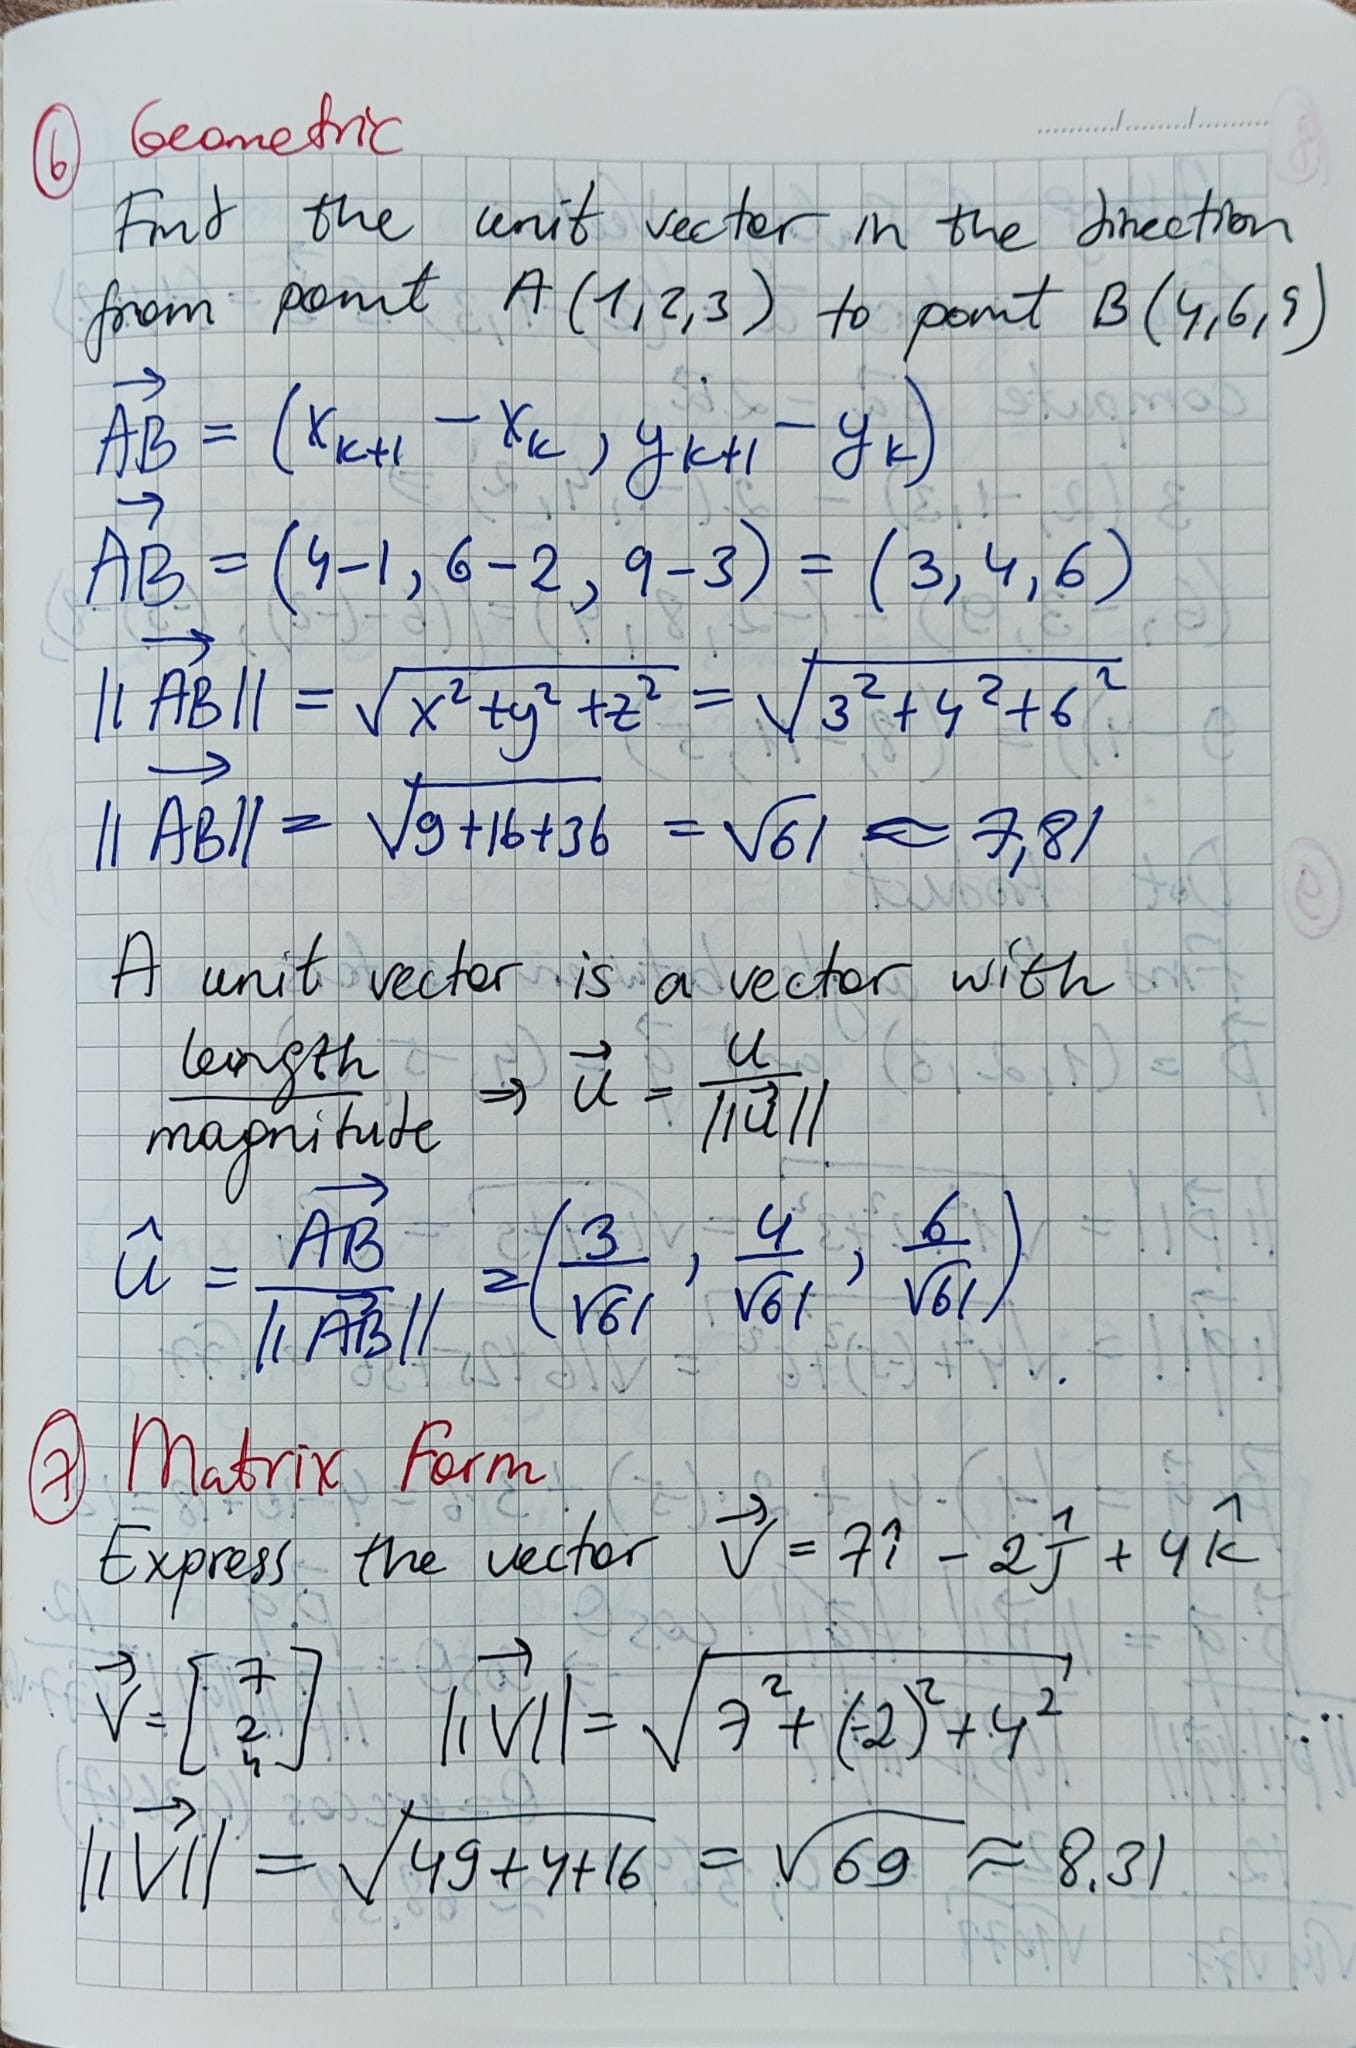 6 Geometric
Find the unit vector in the direction
from point A(1,2,3) to point B(4,6,9)
\overrightarrow{AB} = (x_{k+1} - x_k, y_{k+1} - y_k)
\overrightarrow{AB} = (4-1, 6-2, 9-3) = (3,4,6)
||\overrightarrow{AB}|| = \sqrt{x^2+y^2+z^2} = \sqrt{3^2+4^2+6^2}
||\overrightarrow{AB}|| = \sqrt{9+16+36} = \sqrt{61} ≈ 7,81
A unit vector is a vector with
\frac{length}{magnitude} ⇒ \vec{u} = \frac{u}{||\vec{u}||}
\hat{u} = \frac{\overrightarrow{AB}}{||\overrightarrow{AB}||} = (\frac{3}{\sqrt{61}}, \frac{4}{\sqrt{61}}, \frac{6}{\sqrt{61}})
7 Matrix Form
Express the vector \vec{V} = 7\hat{i} - 2\hat{j} + 4\hat{k}
\vec{V} = [7 2 4] ||\vec{V}|| = \sqrt{7^2+(-2)^2+4^2}
||\vec{V}|| = \sqrt{49+4+16} = \sqrt{69} ≈ 8.31